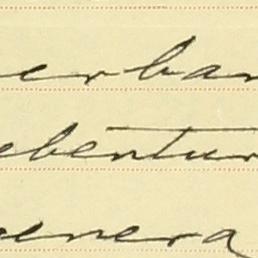 erban
ebentur
enera